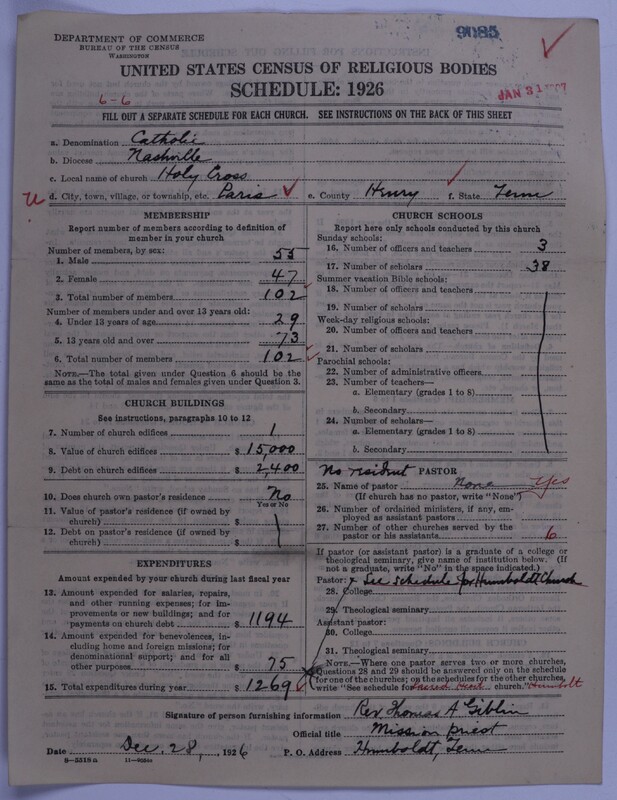 DEPARTMENT OF COMMERCE
BUREAU OF THE CENSUS
WASHINGTON
9085
UNITED STATES CENSUS OF RELIGIOUS BODIES
SCHEDULE: 1926
6-6
JAN 31
FILL OUT A SEPARATE SCHEDULE FOR EACH CHURCH. SEE INSTRUCTIONS ON THE BACK OF THIS SHEET
a. Denomination Catholic
b. Diocese Nashville
c. Local name of church Holy Cross
d. City, town, village, or township, etc. Paris e. County Henry f. State Tenn
MEMBERSHIP
Report number of members according to definition of
member in your church
Number of members, by sex:
1. Male 55
2. Female 47
3. Total number of members 102
Number of members under and over 13 years old:
4. Under 13 years of age 29
5. 13 years old and over 73
6. Total number of members 102
NOTE.—The total given under Question 6 should be the
same as the total of males and females given under Question 3.
CHURCH BUILDINGS
See instructions, paragraphs 10 to 12
7. Number of church edifices 1
8. Value of church edifices $ 15,000
9. Debt on church edifices $ 2,400
10. Does church own pastor's residence No
Yes or No
11. Value of pastor's residence (if owned by
church) $
12. Debt on pastor's residence (if owned by
church) $
EXPENDITURES
Amount expended by your church during last fiscal year
13. Amount expended for salaries, repairs,
and other running expenses; for im-
provements or new buildings; and for
payments on church debt $ 1194
14. Amount expended for benevolences, in-
cluding home and foreign missions; for
denominational support; and for all
other purposes $ 75
15. Total expenditures during year $ 1269
CHURCH SCHOOLS
Report here only schools conducted by this church
Sunday schools:
16. Number of officers and teachers 3
17. Number of scholars 38
Summer vacation Bible schools:
18. Number of officers and teachers
19. Number of scholars
Week-day religious schools:
20. Number of officers and teachers
21. Number of scholars
Parochial schools:
22. Number of administrative officers
23. Number of teachers—
a. Elementary (grades 1 to 8)
b. Secondary
24. Number of scholars—
a. Elementary (grades 1 to 8)
b. Secondary
No resident PASTOR
25. Name of pastor None Yes
(If church has no pastor, write "None")
26. Number of ordained ministers, if any, em-
ployed as assistant pastors
27. Number of other churches served by the
pastor or his assistants 6
If pastor (or assistant pastor) is a graduate of a college or
theological seminary, give name of institution below. (If
not a graduate, write "No" in the space indicated.)
Pastor: See schedule for Humboldt Church
28. College
29. Theological seminary
Assistant pastor:
30. College
31. Theological seminary
NOTE.—Where one pastor serves two or more churches,
Questions 28 and 29 should be answered only on the schedule
for one of the churches; on the schedules for the other churches,
write "See schedule for Sacred Heart church." Humboldt
Signature of person furnishing information Rev Thomas A Giblin
Official title Mission priest
Date Dec. 28, 1926 P. O. Address Humboldt, Tenn
8-5518a